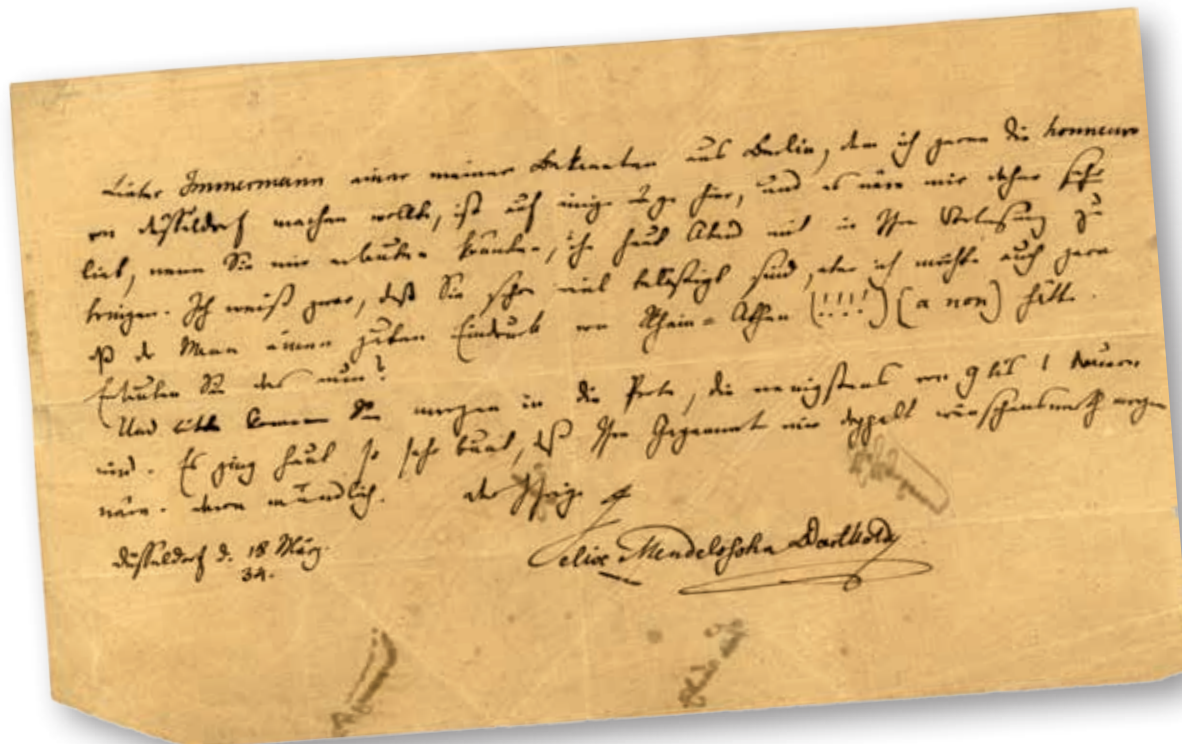 Lieber Immermann einer meiner Bekannten aus Berlin, dem ich gerne die honneurs
von Düsseldorf machen wollte, ist auf einige Tage hier, und es wäre mir daher sehr
lieb, wenn Sie mir erlauben könnten, ihn heut Abend mit in Ihre Vorlesung zu
bringen. Ich weiß zwar, daß Sie schon viel belästigt sind, aber ich möchte auch gern
daß der Mann einen guten Eindruck von Rhein=Athen (!!!!) (a non) hätte.
Erlauben Sie das nun?
Und bitte kommen Sie morgen in die Probe, die wenigstens von 9 bis 1 dauern
wird. Es ging heut so sehr bunt, daß Ihre Gegenwart mir doppelt wünschenswerth morgen
wäre. mündlich. der Ihrige
Felix Mendelssohn Bartholdy
Düsseldorf d. 18 März.
34.